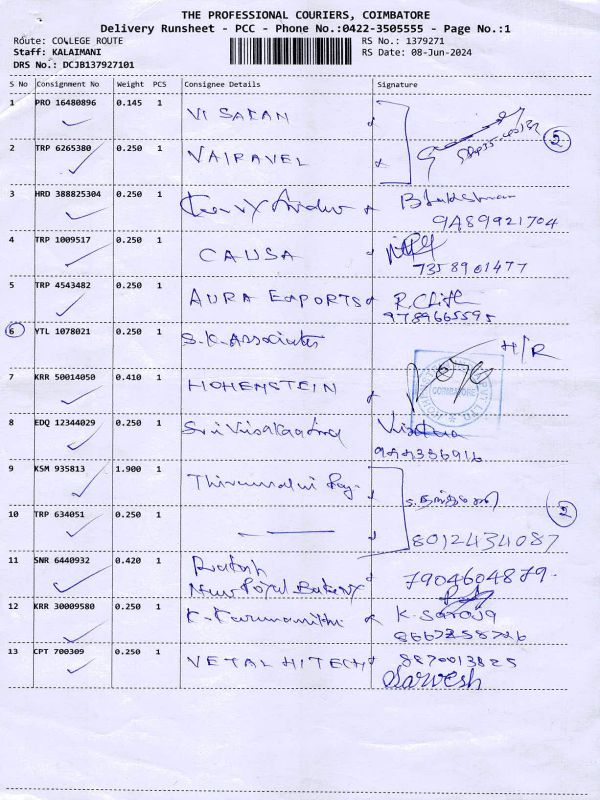 THE PROFESSIONAL COURIERS, COIMBATORE
Delivery Runsheet - PCC - Phone No.:0422-3505555 - Page No.:1
Route: COLLEGE ROUTE RS No.: 1379271
Staff: KALAIMANI RS Date: 08-Jun-2024
DRS No.: DCJB137927101
S No Consignment No Weight PCS Consignee Details Signature
1 PRO 16480896 0.145 1 VISAKAN
2 TRP 6265380 0.250 1 VAIRAVEL 2
3 HRD 388825304 0.250 1
9489921704
4 TRP 1009517 0.250 1 CAUSA
7358901477
5 TRP 4543482 0.250 1 AURA EXPORTS
9789665595
6 YTL 1078021 0.250 1 S.K. Associates H/R
7 KRR 50014050 0.410 1 HOHENSTEIN COIMBATORE
8 EDQ 12344029 0.250 1
9 KSM 935813 1.900 1
2
10 TRP 634051 0.250 1 8012434087
11 SNR 6440932 0.420 1 7904604879
New Royal Bakery
12 KRR 30009580 0.250 1 K. Karunanithi K. Saroja
13 CPT 700309 0.250 1 VETAL HITECH 8870013825
Sarvesh